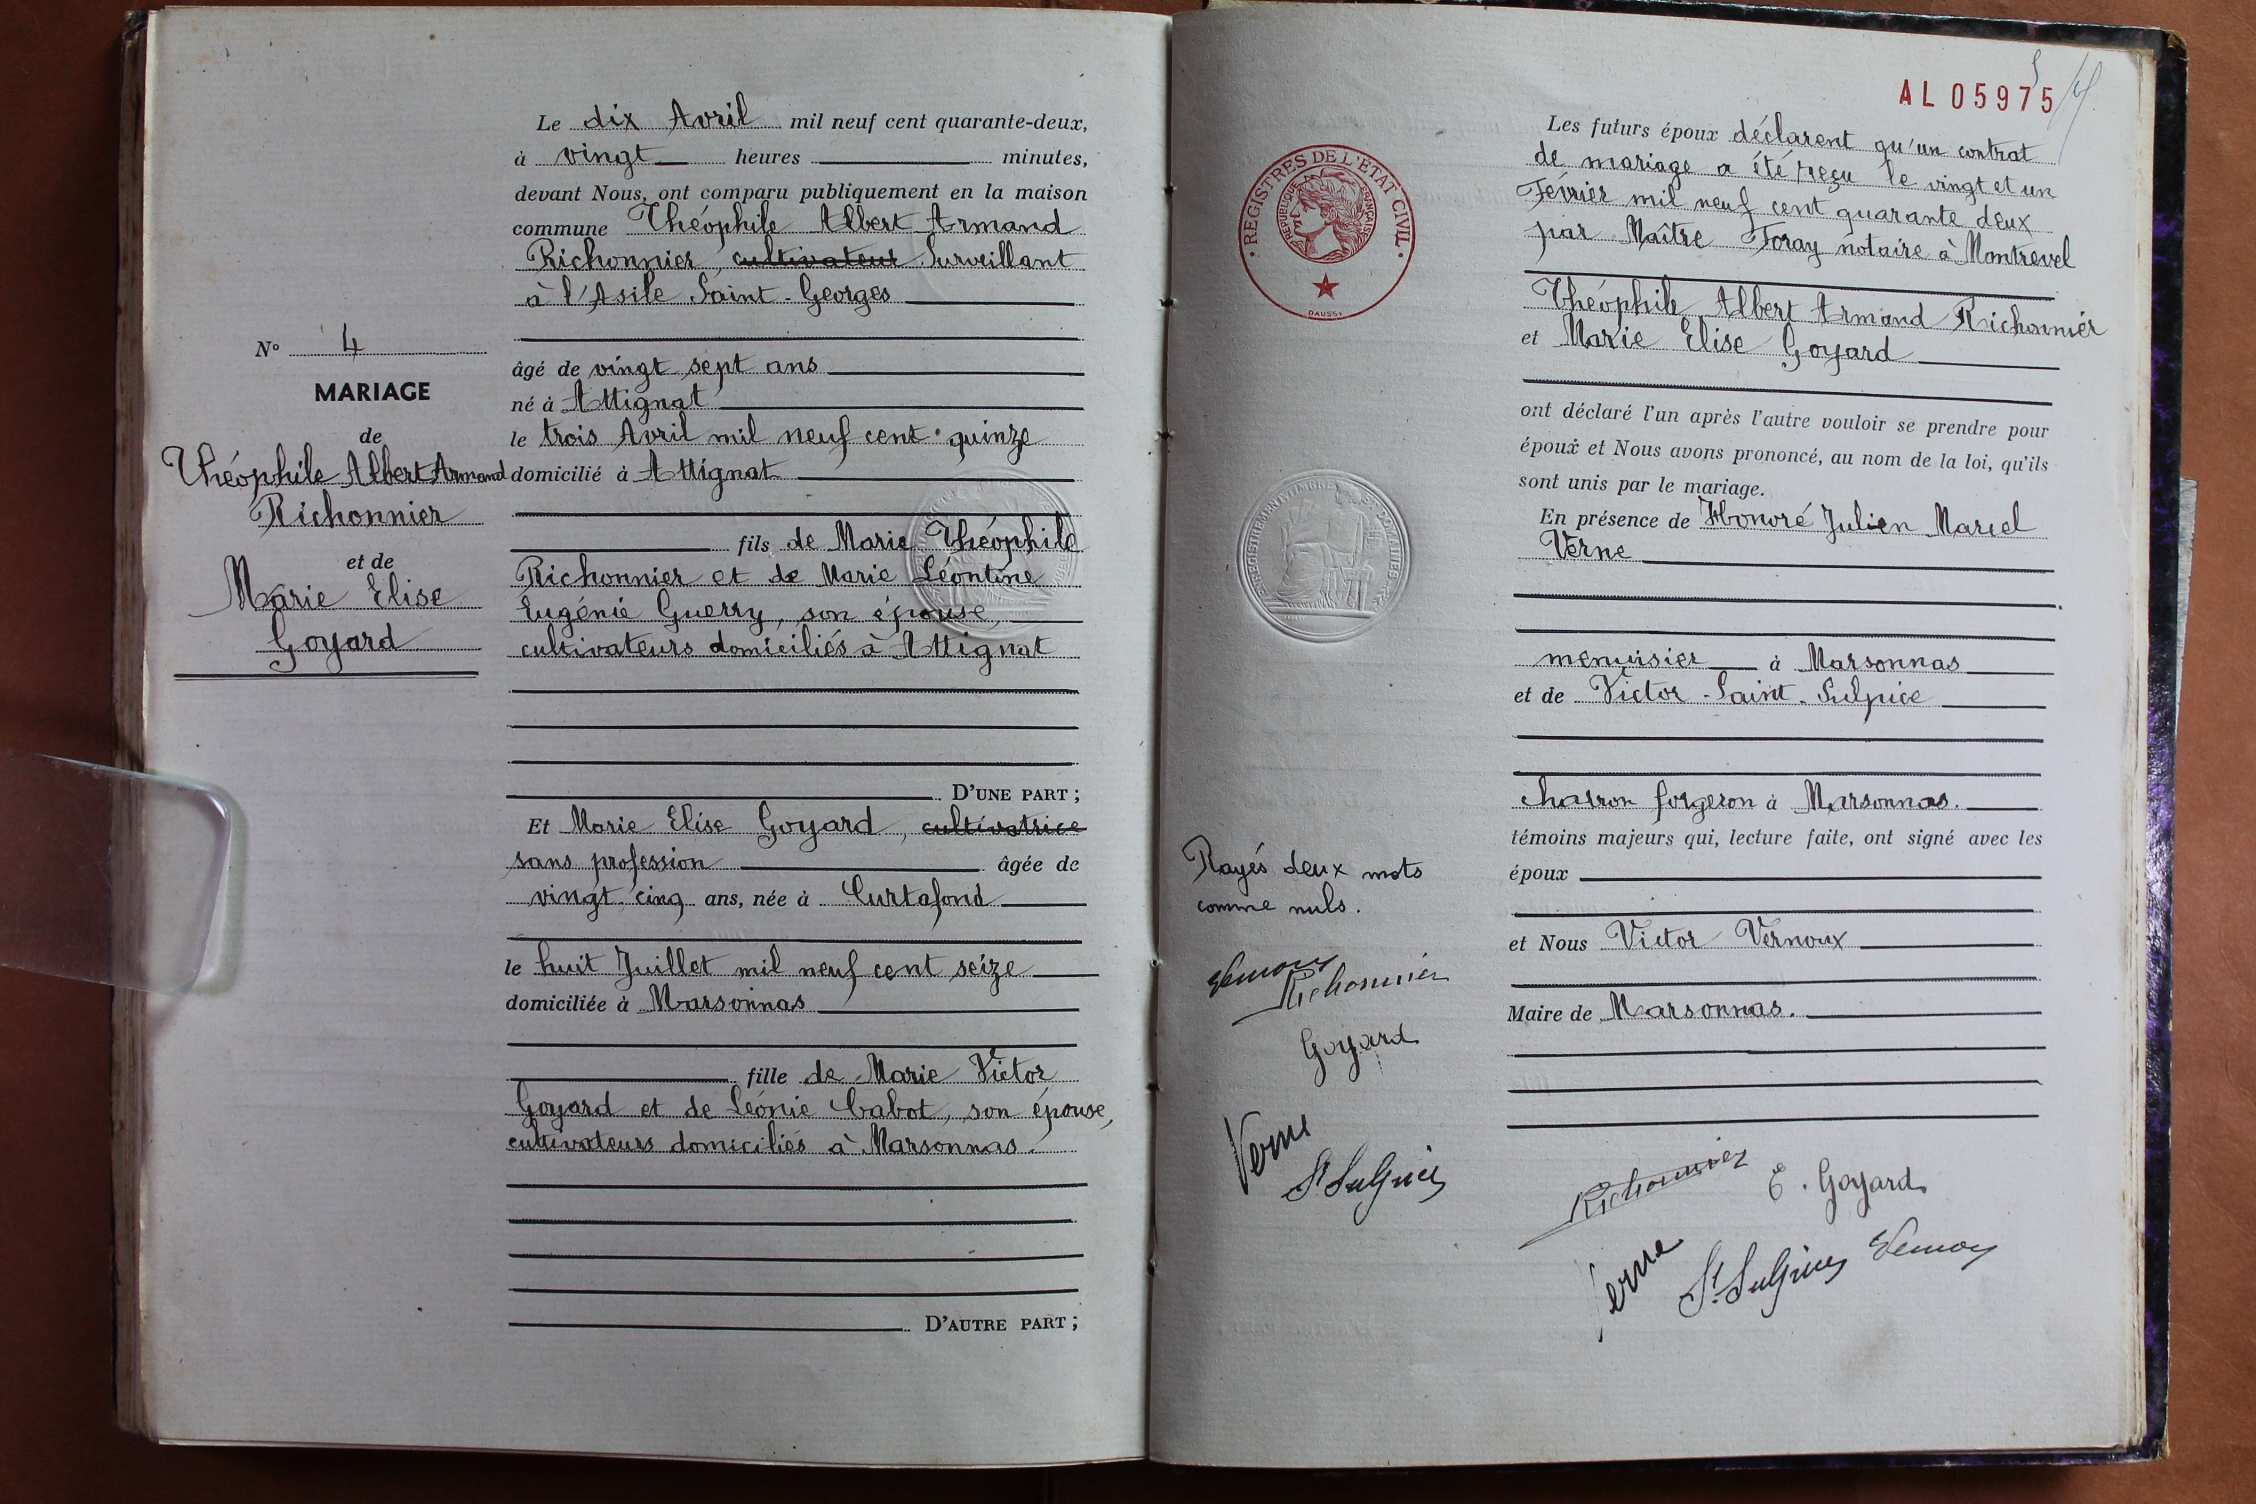 N° 4
MARIAGE
de
Théophile Albert Armand
Richonnier
et de
Marie Elise
Goyard
Le dix Avril mil neuf cent quarante-deux,
à vingt heures minutes,
devant Nous, ont comparu publiquement en la maison
commune Théophile Albert Armand
Richonnier, cultivateur Surveillant
à l'Asile Saint-Georges
âgé de vingt sept ans
né à Attignat
le trois Avril mil neuf cent quinze
domicilié à Attignat
fils de Marie Théophile
Richonnier et de Marie Léontine
Eugénie Guerry, son épouse,
cultivateurs domiciliés à Attignat
D'UNE PART ;
Et Marie Elise Goyard, cultivatrice
sans profession âgée de
vingt cinq ans, née à Curtafond
le huit Juillet mil neuf cent seize
domiciliée à Marsonnas
fille de Marie Victor
Goyard et de Léonie Cabot, son épouse,
cultivateurs domiciliés à Marsonnas.
D'AUTRE PART ;
AL 05975
REGISTRES DE L'ETAT CIVIL
REPUBLIQUE FRANÇAISE
DAUSSY
Les futurs époux déclarent qu'un contrat
de mariage a été reçu le vingt et un
Février mil neuf cent quarante deux
par Maître Foray notaire à Montrevel
Théophile Albert Armand Richonnier
et Marie Elise Goyard
ont déclaré l'un après l'autre vouloir se prendre pour
époux et Nous avons prononcé, au nom de la loi, qu'ils
sont unis par le mariage.
En présence de Honoré Julien Marcel
Verne
menuisier à Marsonnas
et de Victor Saint-Sulpice
charron forgeron à Marsonnas.
témoins majeurs qui, lecture faite, ont signé avec les
époux
et Nous Victor Vernoux
Maire de Marsonnas.
Rayés deux mots
comme nuls.
Vernoux
Richonnier
Goyard
Verne
St Sulpice
Richonnier
E. Goyard
Verne
St Sulpice
Vernoux